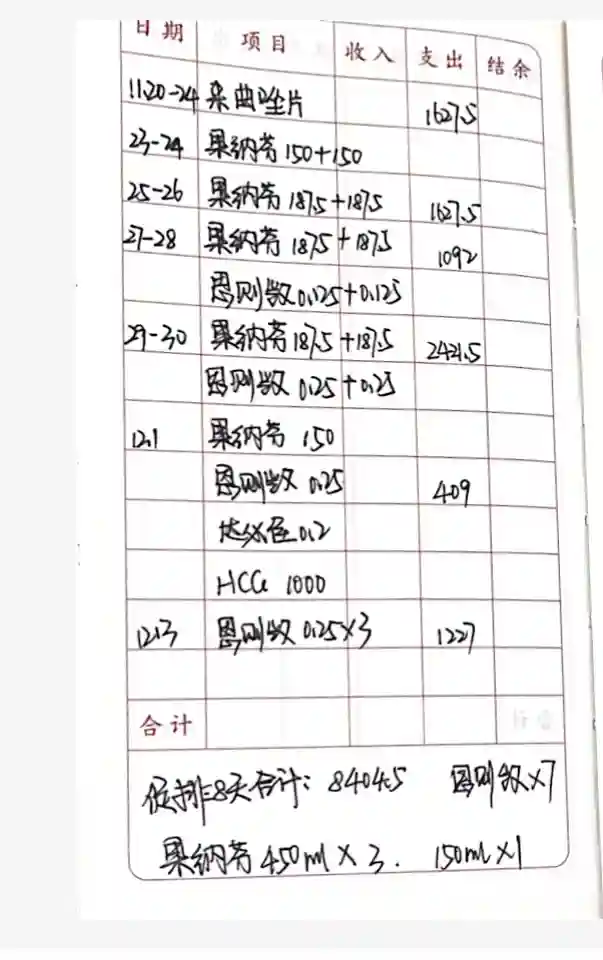 日期 项目 收入 支出 结余
11.20-24 来曲唑片 1627.5
23-24 果纳芬 150+150
25-26 果纳芬 187.5+187.5 1627.5
27-28 果纳芬 187.5+187.5 1092
思则凯 0.125+0.125
29-30 果纳芬 187.5+187.5 2421.5
思则凯 0.25+0.25
12.1 果纳芬 150
思则凯 0.25 409
达必佳 0.2
HCG 1000
12.13 思则凯 0.25×3 1227
合计
促排8天合计: 8404.5 思则凯×7
果纳芬 450ml × 3. 150ml×1